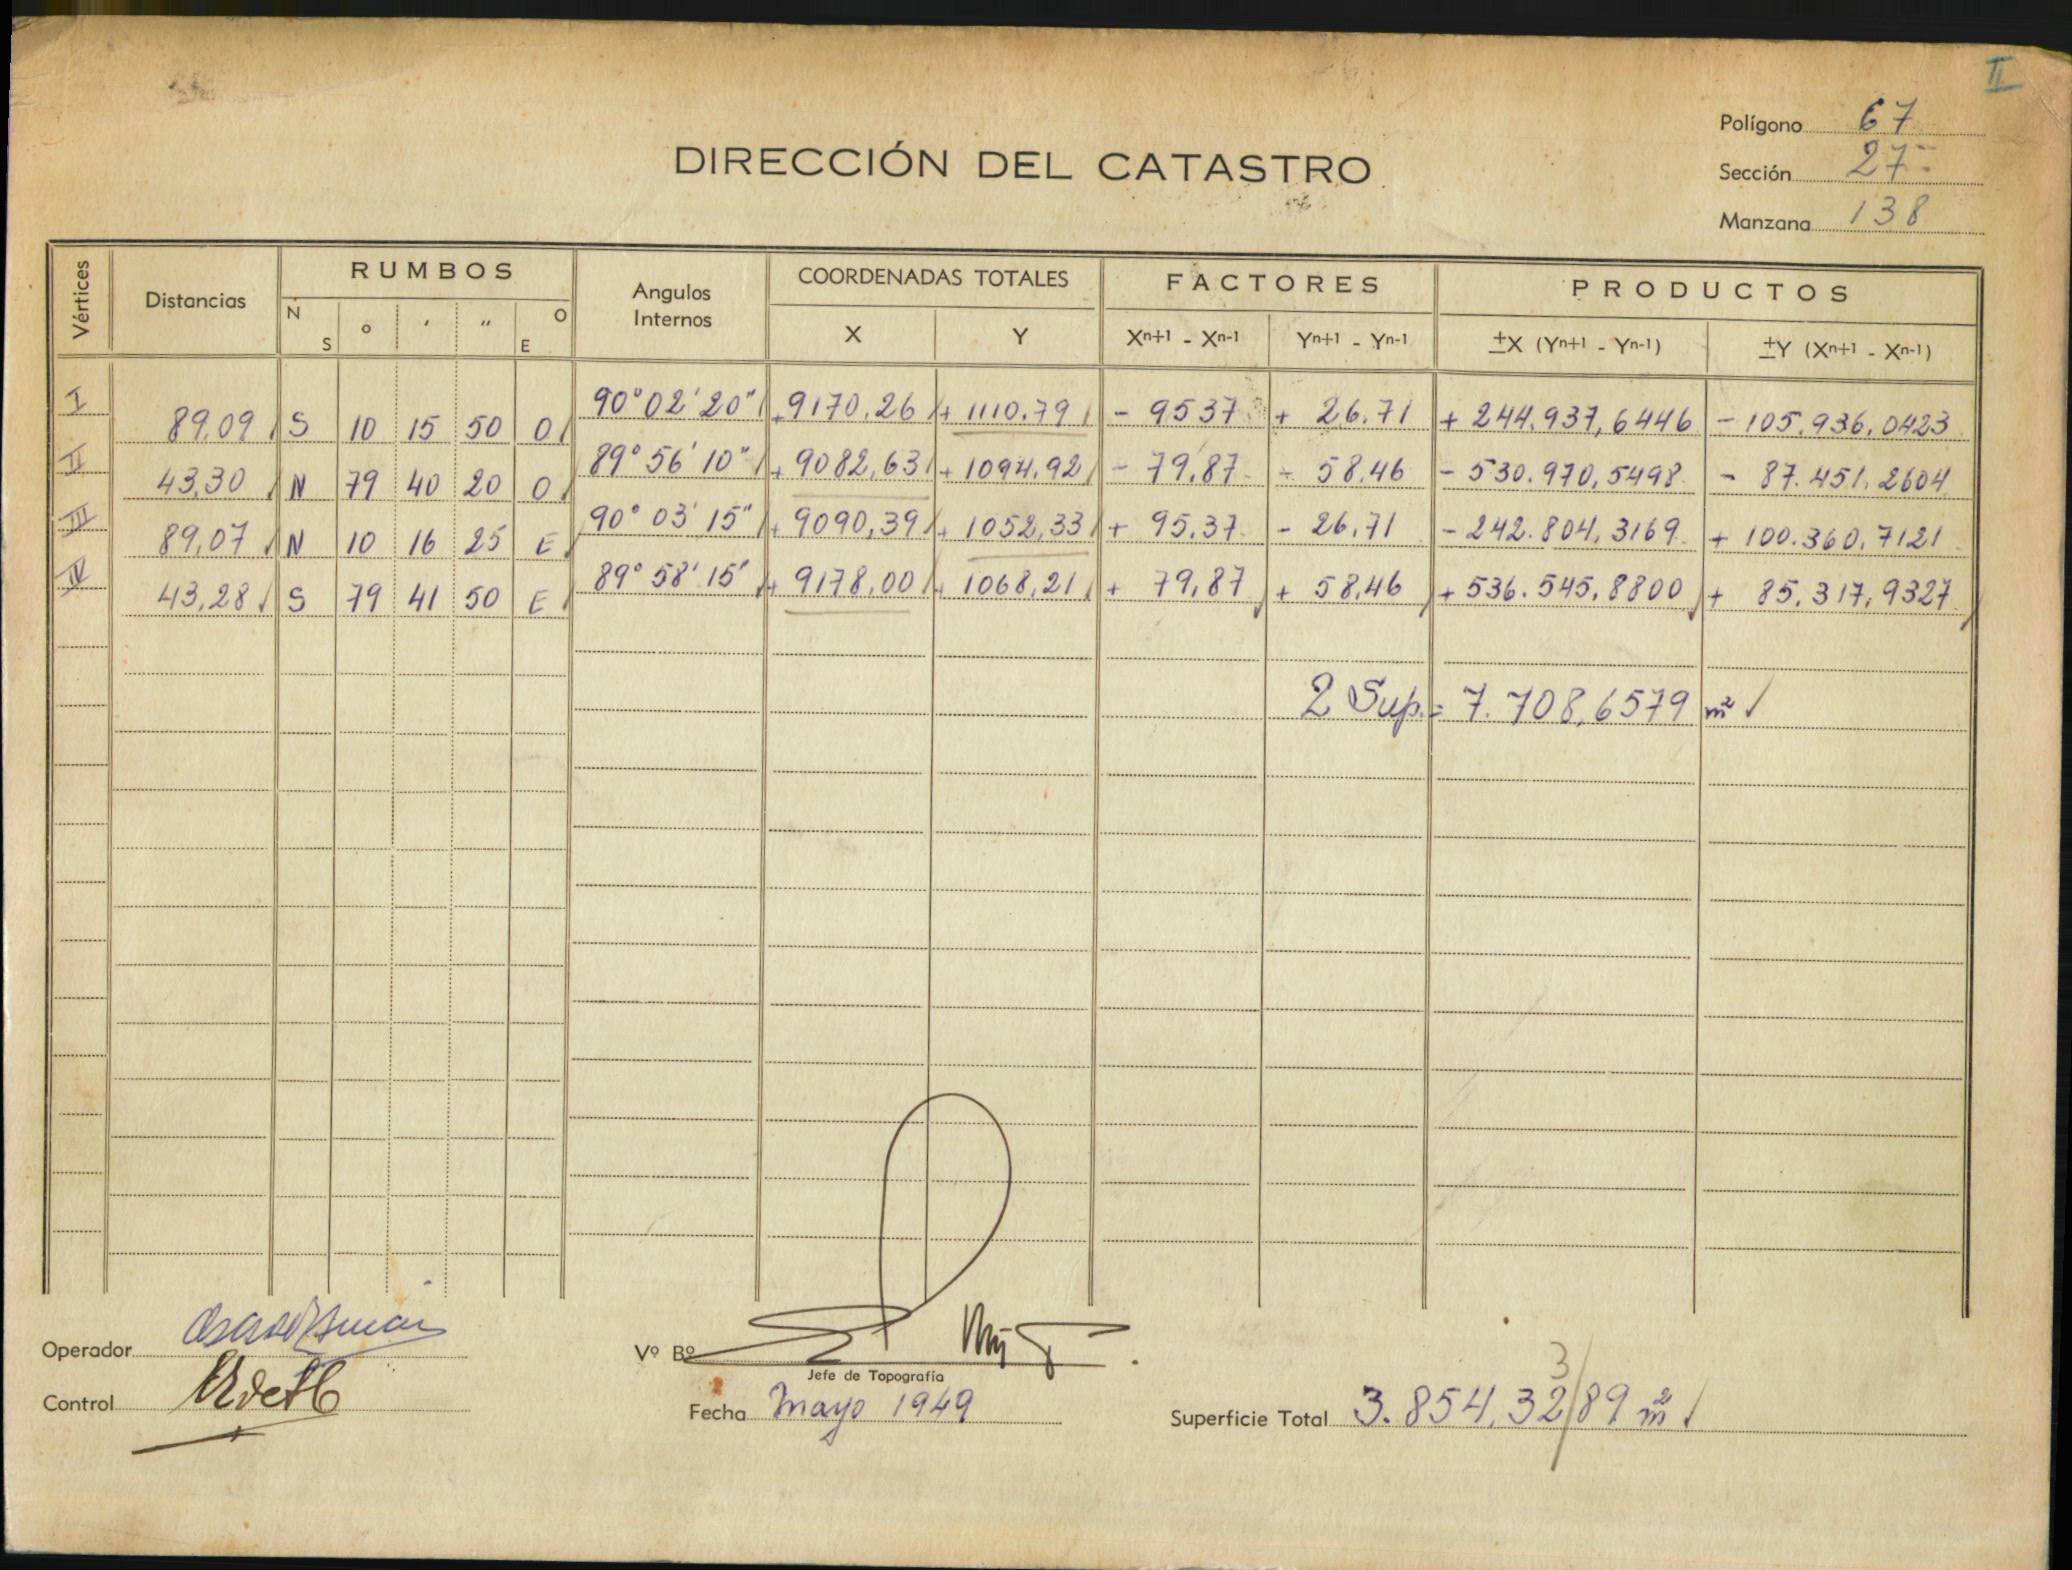 II
Polígono 67
DIRECCIÓN DEL CATASTRO
Sección 27
Manzana 138
Vértices Distancias RUMBOS Angulos Internos COORDENADAS TOTALES FACTORES PRODUCTOS
N S ° ' '' O E X Y Xn+1 - Xn-1 Yn+1 - Yn-1 ±X (Yn+1 - Yn-1) ±Y (Xn+1 - Xn-1)
I 89,09 S 10 15 50 O 90° 02' 20" +9170,26 + 1110,79 - 9537 + 26,71 + 244.937,6446 - 105.936,0423
II 43,30 N 79 40 20 O 89° 56' 10" + 9082,63 + 1094,92 - 79,87 - 58,46 - 530.970,5498 - 87.451,2604
III 89,07 N 10 16 25 E 90° 03' 15" + 9090,39 + 1052,33 + 95,37 - 26,71 - 242.804,3169 + 100.360,7121
IV 43,28 S 79 41 50 E 89° 58' 15' + 9178,00 + 1068,21 + 79,87 + 58,46 + 536.545,8800 + 85.317,9327
2 Sup. = 7.708,6579 m²
Operador
Vº Bº
Jefe de Topografía
Control
Fecha mayo 1949
3
Superficie Total 3.854,32/89 m²